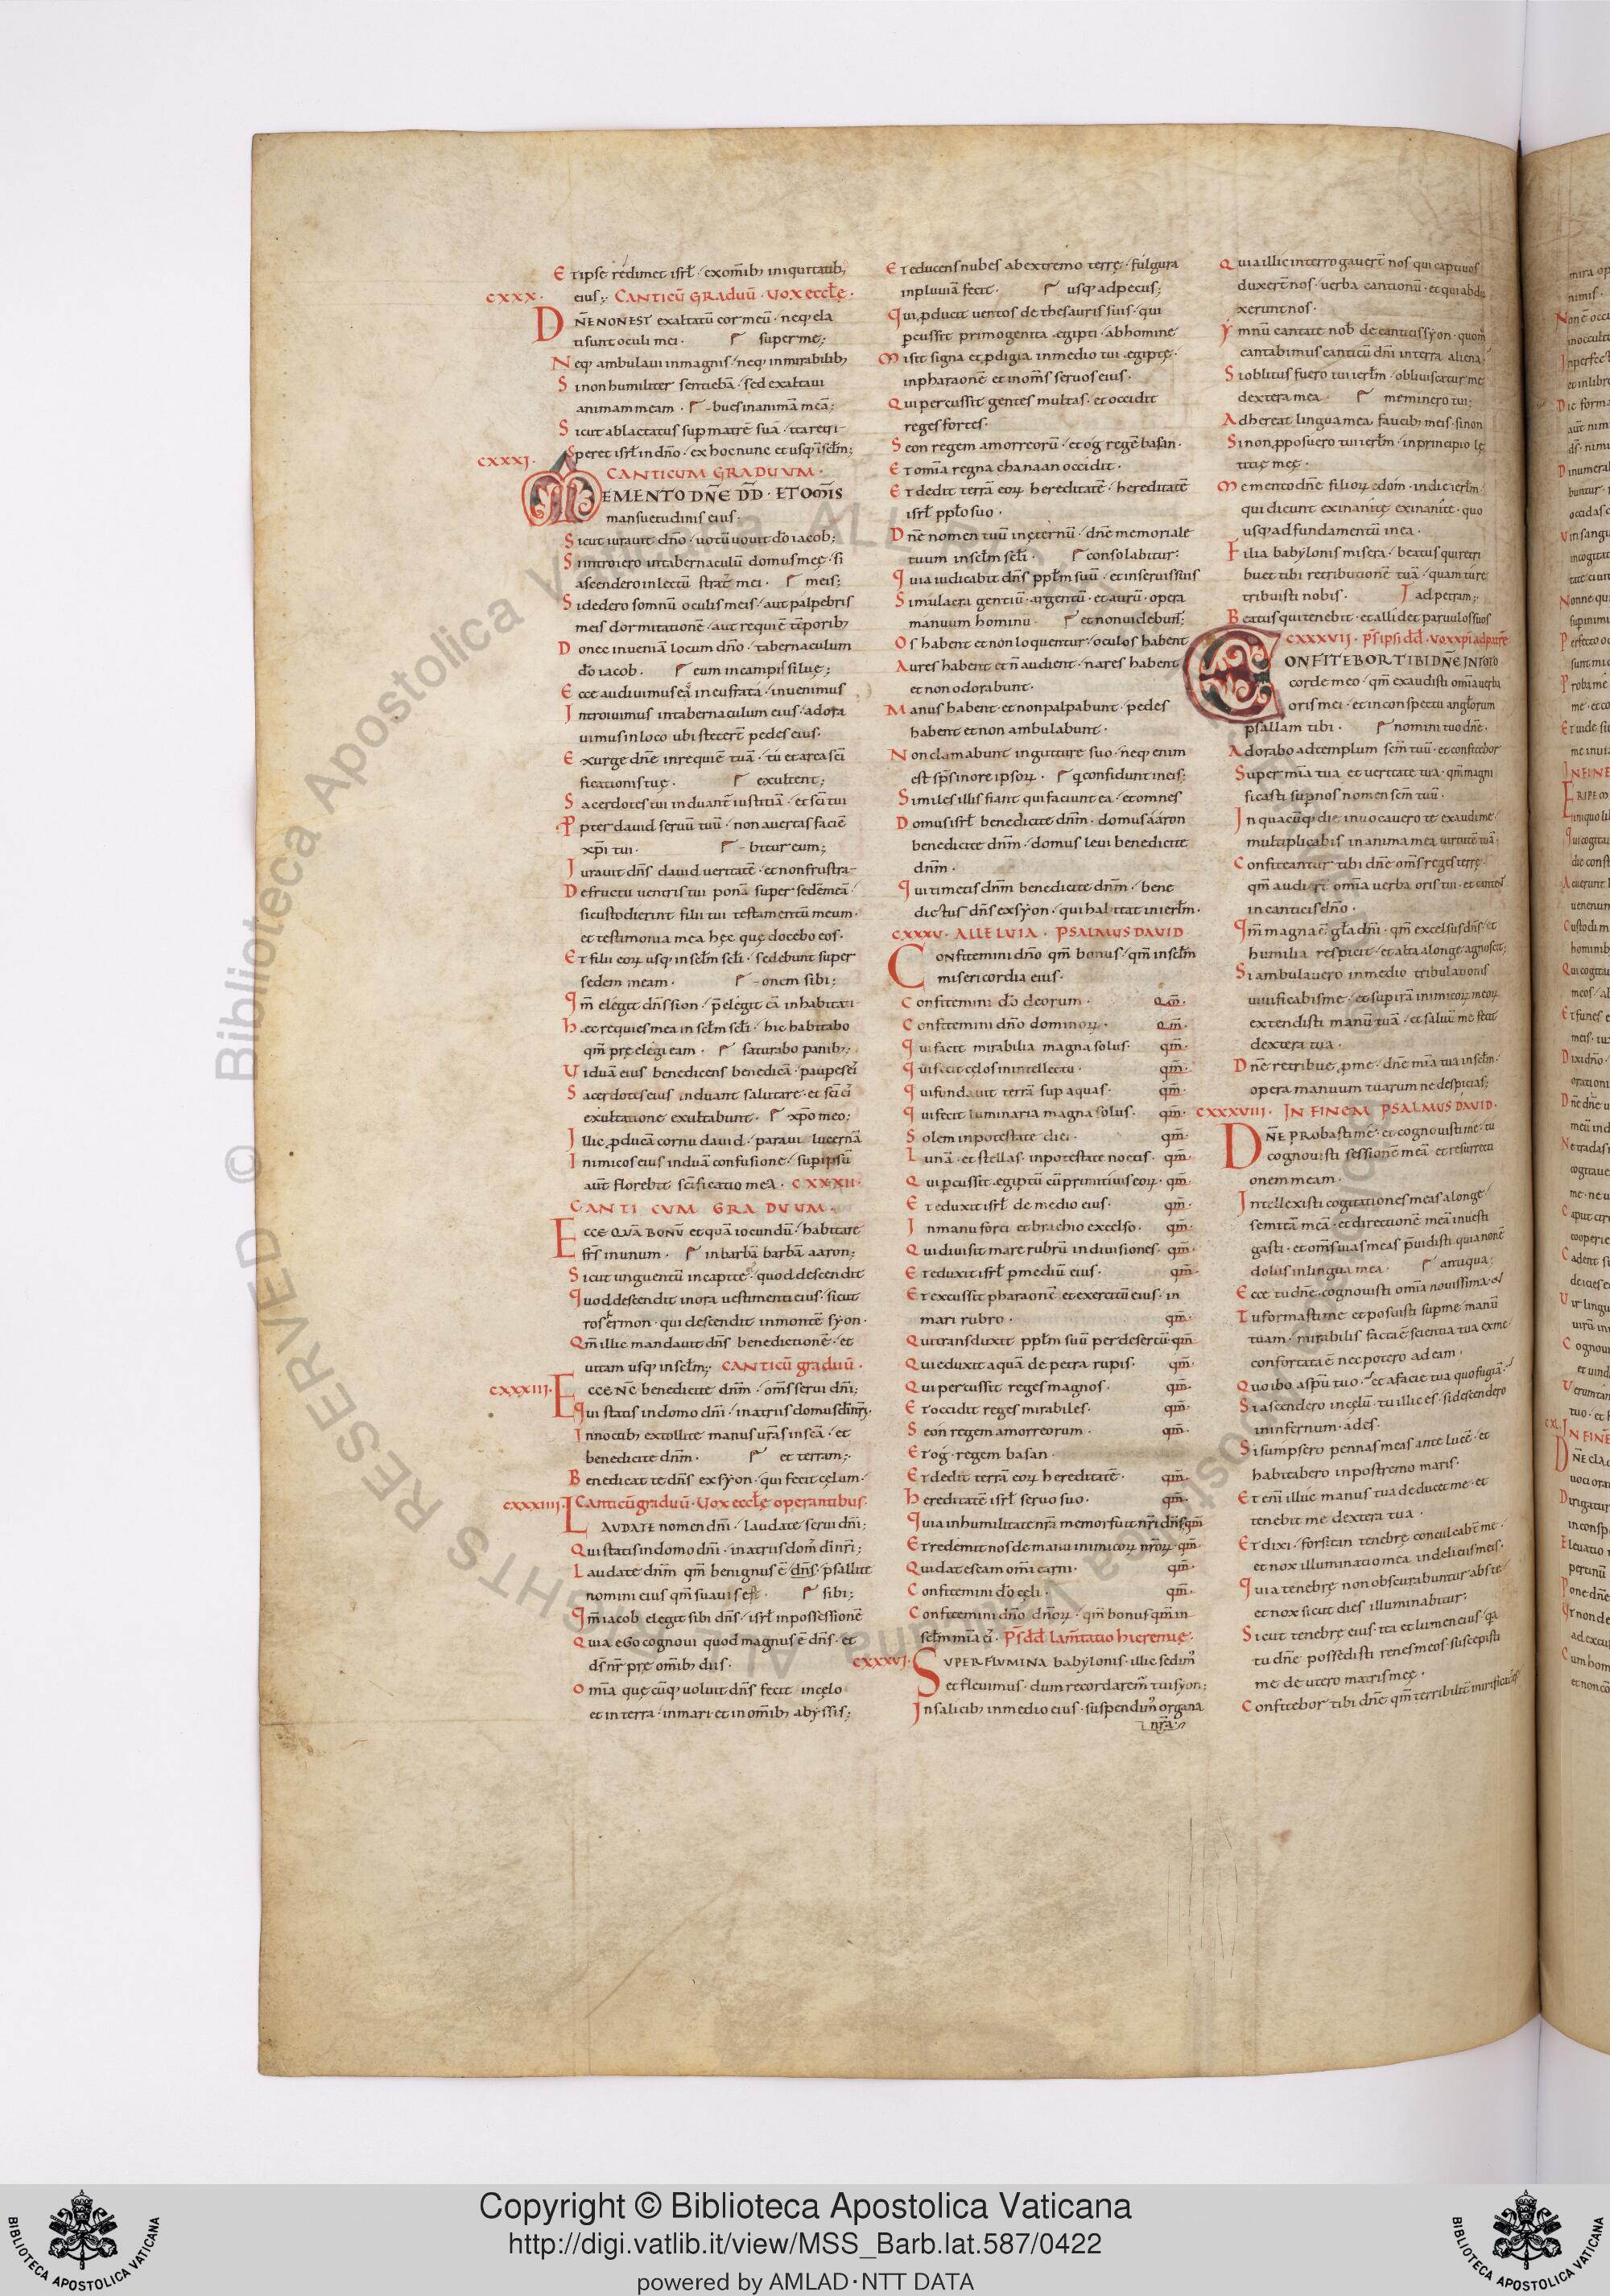 Et ipse redimet isrł · exom̄ib; iniquitatib;
CXXX.
eius; CANTICŪ GRADUŪ · VOX ECCLĘ ·
DÑE NON EST exaltatū cor meū · neq; ela
ti sunt oculi mei · super me;
Neq; ambulaui in magnis · neq; in mirabilib;
Si non humiliter sentiebā · sed exaltaui
animam meam · bues in animā meā;
Sicut ablactatus sup matrē suā · ita retri
CXXXI.
Speret isrł in dño · ex hoc nunc et usq; in sclm;
CANTICUM GRADUUM ·
MEMENTO DÑE DD̄ · ET OM̄IS
mansuetudinis eius ·
Sicut iurauit dño · uotū uouit dō iacob;
Si introiero in tabernaculū domus meę · si
ascendero in lectū strati mei · meis;
Si dedero somnū oculis meis · aut palpebris
meis dormitationē · aut requiē tēporib;
Donec inueniā locum dño · tabernaculum
dō iacob · eum in campis siluę;
Ecce audiuimus eā in eufrata · inuenimus
Introiuimus in tabernaculum eius · adora
uimus in loco ubi stetert̄ pedes eius ·
Exurge dñe in requiē tuā · tu et arca sc̄i
ficationis tuę · exultent;
Sacerdotes tui induant̄ iustitiā · et sc̄i tui
Ppter dauid seruū tuū · non auertas faciē
xp̄i tui · bitur eum;
Iurauit dñs dauid ueritatē · et non frustra
De fructu uentris tui ponā super sedē meā ·
si custodierint filii tui testamentū meum ·
et testimonia mea hęc quę docebo eos ·
Et filii eoꝝ usq; in sclm scl̄i · sedebunt super
sedem meam · onem sibi;
Qm̄ elegit dñs sion · p̄elegit eā in habitati
Hæc requies mea in sclm scl̄i · hic habitabo
qm̄ pręelegi eam · saturabo panib;
Uiduā eius benedicens benedicā · paupes ei
Sacerdotes eius induant salutare · et sc̄i ei
exultatione exultabunt · xp̄o meo;
Illic pducā cornu dauid · paraui lucernā
Inimicos eius induā confusione · sup ipsū
aūt florebit sc̄ificatio mea · CXXXII ·
CANTICUM GRADUUM ·
ECCE QUĀ BONŪ et quā iocundū · habitare
frs̄ in unum · in barbā barbā aaron;
Sicut unguentū in capite · quod descendit
Quod descendit in ora uestimenti eius · sicut
ros ermon · qui descendit in montē syon ·
Qm̄ illic mandauit dñs benedictionē · et
uitam usq; in sclm; CANTICŪ graduū ·
CXXXIII.
ECCE Nc̄ benedicite dnm̄ · om̄s serui dñi;
Qui statis in domo dñi · in atriis domus di nr̄i;
In noctib; extollite manus ur̄as in sc̄a · et
benedicite dnm̄ · et terram;
Benedicat te dñs ex syon · qui fecit cęlum ·
CXXXIIII.
Canticū graduū · Vox ecclę operantibus ·
LAUDATE nomen dñi · laudate serui dñi;
Qui statis in domo dñi · in atriis dom' di nr̄i;
Laudate dnm̄ qm̄ benignus ē dñs · psallite
nomini eius qm̄ suauis est · sibi;
Qm̄ iacob elegit sibi dñs · isrł in possessionē
Quia ego cognoui quod magnus ē dñs · et
ds̄ nr̄ prę om̄ib; diis ·
Omīa quęcūq; uoluit dñs fecit in cęlo
et in terra · in mari et in om̄ib; abyssis;
Et educens nubes ab extremo terrę · fulgura
in pluuiā fecit · usq; ad pecus;
Qui pducit uentos de thesauris suis · qui
pcussit primogenita ęgipti · ab homine
Misit signa et pdigia in medio tui ęgiptę ·
in pharaonē et in om̄s seruos eius ·
Qui percussit gentes multas · et occidit
reges fortes ·
Seon regem amorreorū · et og regē basan ·
Et omīa regna chanaan occidit ·
Et dedit terrā eoꝝ hereditatē · hereditatē
isrł pplo suo ·
Dñe nomen tuū in ęternū · dñe memoriale
tuum in sclm scl̄i · consolabitur:
Quia iudicabit dñs pplm suū · et in seruis suis
Simulacra gentiū · argentū · et aurū · opera
manuum hominū · et non uidebunt;
Os habent et non loquentur · oculos habent
Aures habent et n̄ audient · nares habent
et non odorabunt ·
Manus habent · et non palpabunt · pedes
habent et non ambulabunt ·
Non clamabunt in gutture suo · neq; enim
est sps̄ in ore ipsoꝝ · q confidunt in eis;
Similes illis fiant qui faciunt ea · et omnes
Domus isrł benedicite dnm̄ · domus aaron
benedicite dnm̄ · domus leui benedicite
dnm̄ ·
Qui timetis dnm̄ benedicite dnm̄ · bene
dictus dñs ex syon · qui habitat in ierl̄m ·
CXXXV · ALLELUIA · PSALMUS DAVID
Confitemini dño qm̄ bonus · qm̄ in sclm̄
misericordia eius ·
Confitemini dō deorum · Qm̄ ·
Confitemini dño dominoꝝ · Qm̄ ·
Qui facit mirabilia magna solus · qm̄ ·
Qui fecit cęlos in intellectu · qm̄ ·
Qui fundauit terrā sup aquas · qm̄ ·
Qui fecit luminaria magna solus · qm̄ ·
Solem in potestate diei · qm̄ ·
Lunā · et stellas · in potestate noctis · qm̄ ·
Qui pcussit ęgiptū cū primitiuis eoꝝ · qm̄ ·
Et eduxit isrł de medio eius · qm̄ ·
In manu forti et brachio excelso · qm̄ ·
Qui diuisit mare rubrū in diuisiones · qm̄ ·
Et eduxit isrł p mediū eius · qm̄ ·
Et excussit pharaonē et exercitū eius · in
mari rubro · qm̄ ·
Qui transduxit pplm suū per desertū · qm̄
Qui eduxit aquā de petra rupis · qm̄ ·
Qui percussit reges magnos · qm̄ ·
Et occidit reges mirabiles · qm̄ ·
Seon regem amorreorum · qm̄ ·
Et og · regem basan ·
Et dedit terrā eoꝝ hereditatē · qm̄ ·
Hereditatē isrł seruo suo · qm̄ ·
Quia in humilitate nr̄a memor fuit nr̄i dñs qm̄
Et redemit nos de manu inimicoꝝ nr̄oꝝ · qm̄
Qui dat escam omī carni · qm̄ ·
Confitemini dō cęli · qm̄ ·
Confitemini dño dñoꝝ · qm̄ bonus qm̄ in
sclm mīa ei · PS DD LAM̄TATIO hieremię ·
CXXXVI.
SUPER FLUMINA babylonis · illic sedim'
et fleuimus · dum recordarem̄ tui syon;
In salicib; in medio eius · suspendim' organa
nr̄a ·
Quia illic interrogauert̄ nos qui captiuos
duxert̄ nos · uerba cantionū · et qui abdu
xerunt nos ·
Ymnū cantate nob̄ de canticis syon · quom̄
cantabimus canticū dñi in terra aliena ·
Si oblitus fuero tui ierl̄m · obliuiscatur me
dextera mea · meminero tui;
Adhereat lingua mea faucib; meis · si non
Si non pposuero tui ierl̄m · in principio lę
titię meę ·
Memento dñe filioꝝ edom · in die ierl̄m ·
qui dicunt exinanite exinanite · quo
usq; ad fundamentū in ea ·
Filia babylonis misera · beatus qui retri
buet tibi retributionē tuā · quam tu re
tribuisti nobis · ad petram;
Beatus qui tenebit · et allidet paruulos suos
CXXXVII · PS IPSI DD · VOX XPI ad patrē
CONFITEBOR TIBI DÑE IN toto
corde meo · qm̄ exaudisti omīa uerba
oris mei · et in conspectu anglorum
psallam tibi · nomini tuo dñe ·
Adorabo ad templum sc̄m tuū · et confitebor
Super mīa tua et ueritate tua · qm̄ magni
ficasti sup nos nomen sc̄m tuū ·
In quacūq; die inuocauero te exaudi me ·
multiplicabis in anima mea uirtutē tuā ·
Confiteantur tibi dñe om̄s reges terrę ·
qm̄ audiert̄ omīa uerba oris tui · et cantet
in canticis dño ·
Qm̄ magna ē gła dñi · qm̄ excelsus dñs · et
humilia respicit · et alta a longe agnoscit;
Si ambulauero in medio tribulationis
uiuificabis me · et sup irā inimicoꝝ meoꝝ
extendisti manū tuā · et saluū me fecit
dextera tua ·
Dñe retribue p me · dñe mīa tua in sclm̄ ·
opera manuum tuarum ne despicias;
CXXXVIII · IN FINEM PSALMUS DAVID ·
DÑE PRObasti me · et cognouisti me · tu
cognouisti sessionē meā et resurrecti
onem meam ·
Intellexisti cogitationes meas a longe ·
semitā meā · et directionē meā inuesti
gasti · et om̄s uias meas p̄uidisti quia non ē
dolus in lingua mea · antiqua;
Ecce tu dñe cognouisti omīa nouissima · et
Tu formasti me et posuisti sup me manū
tuam · mirabilis facta ē scientia tua ex me
confortata ē nec potero ad eam ·
Quo ibo a spū tuo · et a facie tua quo fugiā ·
Si ascendero in cęlū · tu illic es · si descendero
in infernum · ades ·
Si sumpsero pennas meas ante lucē · et
habitabero in postremo maris ·
Et eni illuc manus tua deducet me · et
tenebit me dextera tua ·
Et dixi · forsitan tenebrę conculcabt̄ me ·
et nox illuminatio mea in deliciis meis ·
Quia tenebrę non obscurabuntur abs te
et nox sicut dies illuminabitur:
Sicut tenebrę eius · ita et lumen eius · qa
tu dñe possedisti renes meos · suscepisti
me de utero matris meę ·
Confitebor tibi dñe qm̄ terribilit̄ mirificatus
Copyright © Biblioteca Apostolica Vaticana
http://digi.vatlib.it/view/MSS_Barb.lat.587/0422
powered by AMLAD·NTT DATA
BIBLIOTECA APOSTOLICA VATICANA
BIBLIOTECA APOSTOLICA VATICANA
© Biblioteca Apostolica Vaticana ALL RIGHTS RESERVED